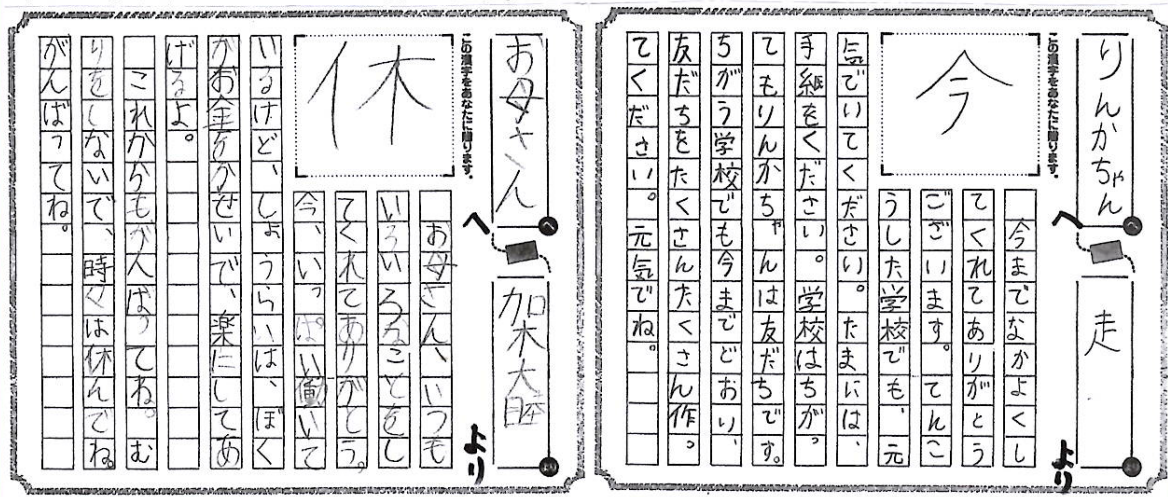 りんかちゃん へ
走 より
この漢字をあなたに贈ります。
今
今までなかよくし
てくれてありがとう
ございます。てんこ
うした学校でも、元
気でいてください。たまには、
手紙をください。学校はちがっ
てもりんかちゃんは友だちです。
ちがう学校でも今までどおり、
友だちをたくさんたくさん作っ
てください。元気でね。
お母さん へ
より
この漢字をあなたに贈ります。
休
お母さん、いつも
いろいろなことをし
てくれてありがとう。
今、いっぱい働いて
いるけど、しょうらいは、ぼく
がお金をかせいで、楽にしてあ
げるよ。
これからもがんばってね。む
りをしないで、時々は休んでね。
がんばってね。